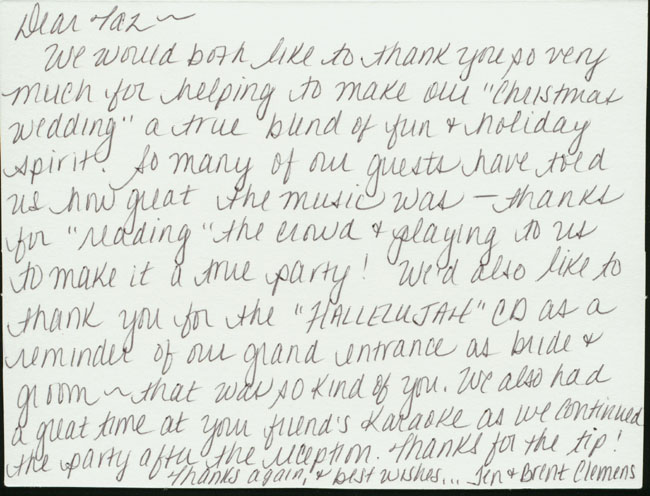 Dear Taz ~
We would both like to thank you so very
much for helping to make our "Christmas
Wedding" a true blend of fun & holiday
spirit. So many of our guests have told
us how great the music was - thanks
for "reading" the crowd & playing to us
to make it a true party! We'd also like to
thank you for the "HALLELUJAH" CD as a
reminder of our grand entrance as bride &
groom ~ that was so kind of you. We also had
a great time at your friend's Karaoke as we continued
the party after the reception. Thanks for the tip!
Thanks again, & best wishes... Jen & Brent Clemens